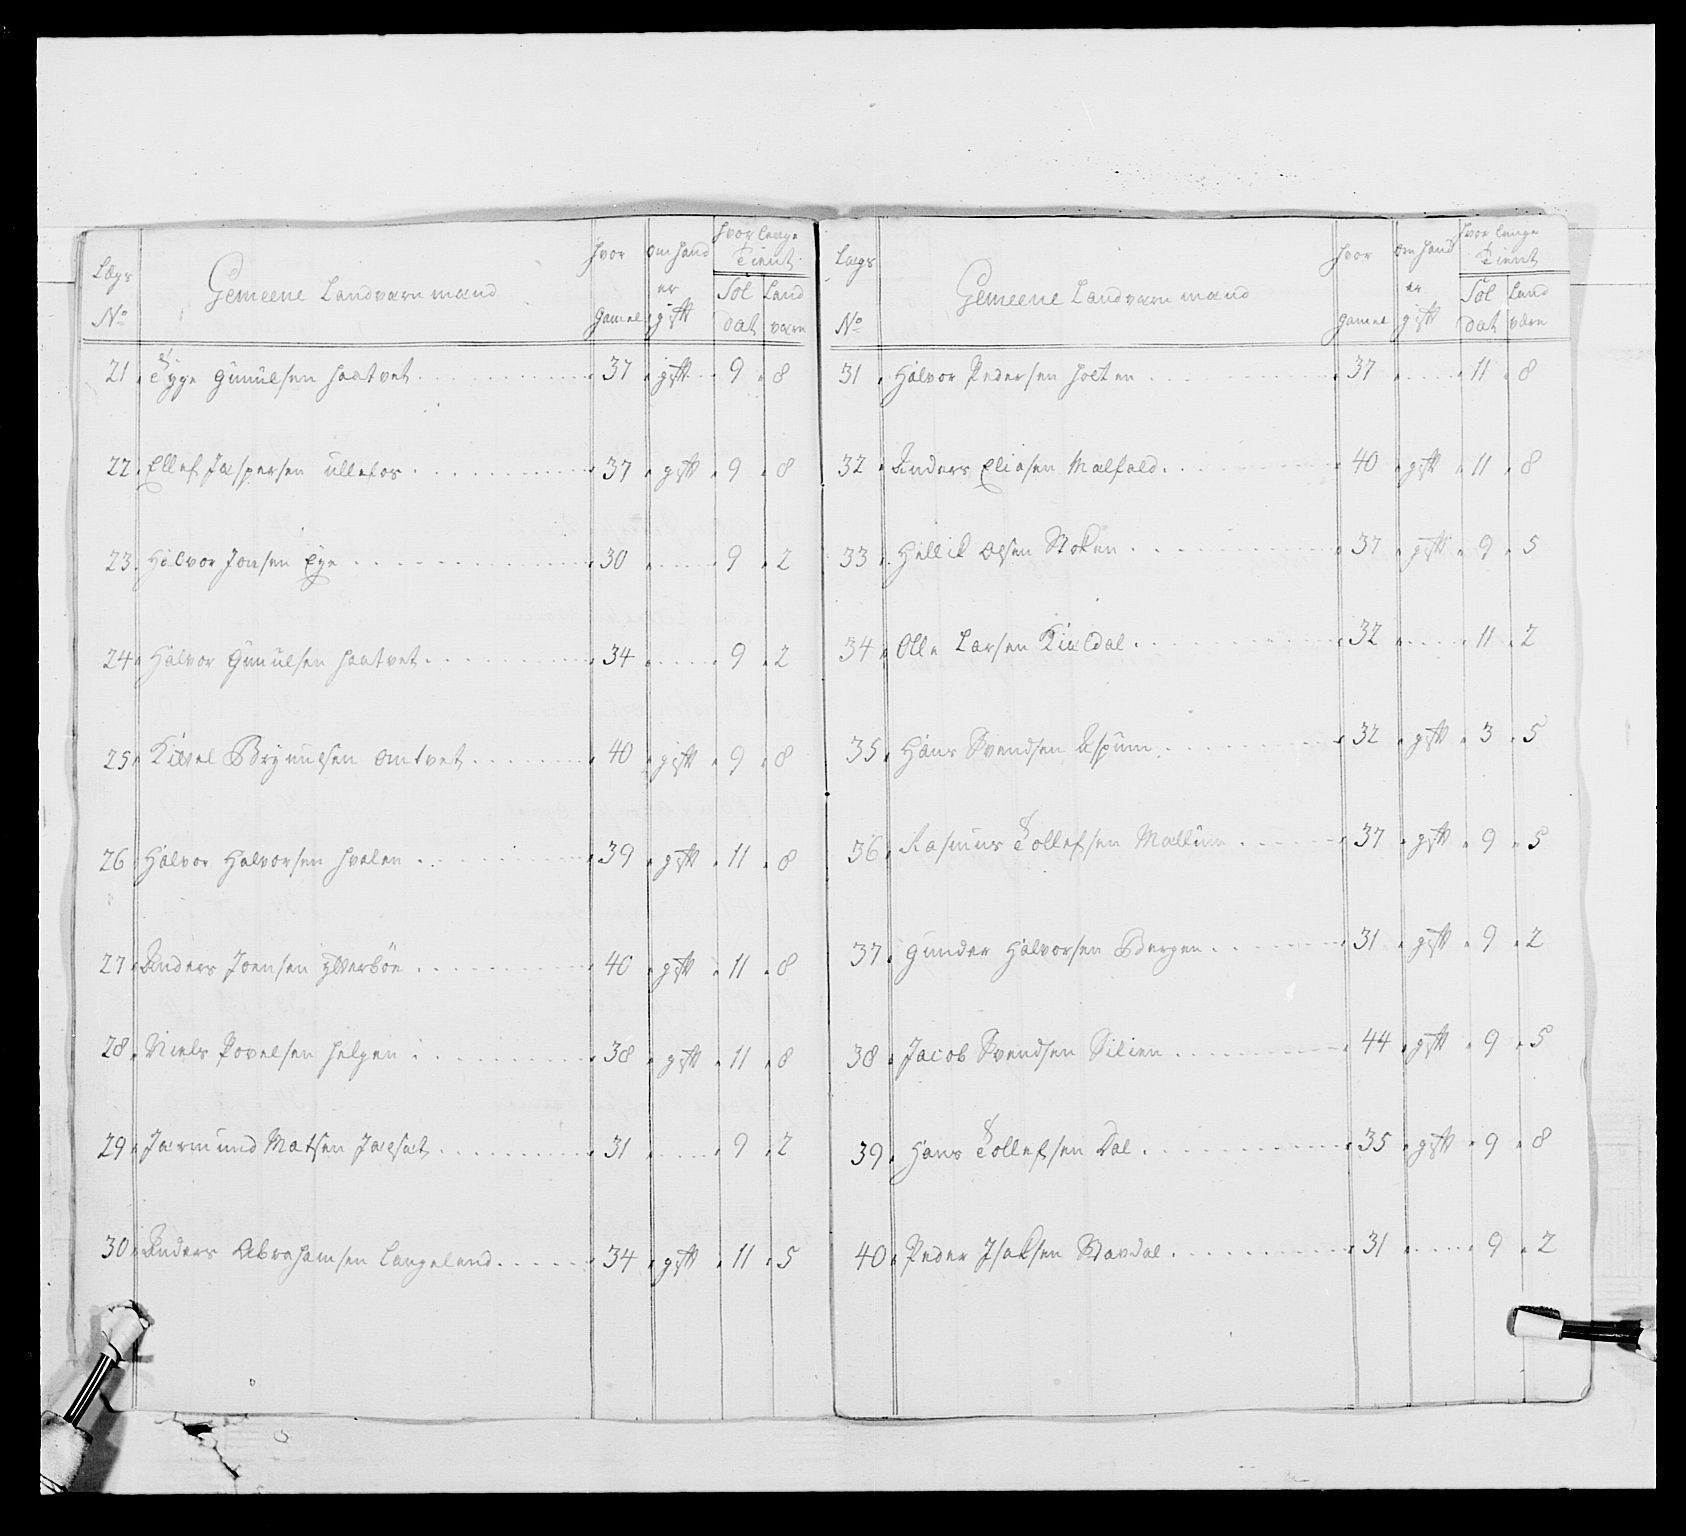 Lægs No Gemeene Landværn mænd hvor gamel om hand er gift hvor længe tient Sol dat Land værn
21 Tyge Gunulsen Haatvet 37 gift 9 8
22 Ellef Jaspersen Ullefos 37 gift 9 8
23 Halvor Jonsen Eye 30 9 2
24 Halvor Gunulsen Haatvet 34 9 2
25 Brynulsen Omtvet 40 gift 9 8
26 Halvor Halvorsen Hvalen 39 gift 11 8
27 Anders Joensen Ytterböe 40 gift 11 8
28 Niels Povelsen Helgen 38 gift 11 8
29 Jarmund Matsen 31 9 2
30 Anders Abrahamsen Langeland 34 gift 11 5
Lægs No Gemeene Landværn mænd hvor gamel om hand er gift hvor længe tient Sol dat Land værn
31 Halvor Pedersen Holten 37 11 8
32 Anders Eliasen Malfald 40 gift 11 8
33 Hellik Olsen Stoken 37 gift 9 5
34 Olle Larsen Kialdal 32 11 2
35 Hans Svendsen Aspum 32 gift 3 5
36 Rasmus Tollefsen 37 gift 9 5
37 Gunder Halvorsen Bergen 31 gift 9 2
38 Jacob Svendsen Silien 44 gift 9 5
39 Hans Tollefsen Dal 35 gift 9 8
40 Peder Isaksen Stavdal 31 9 2